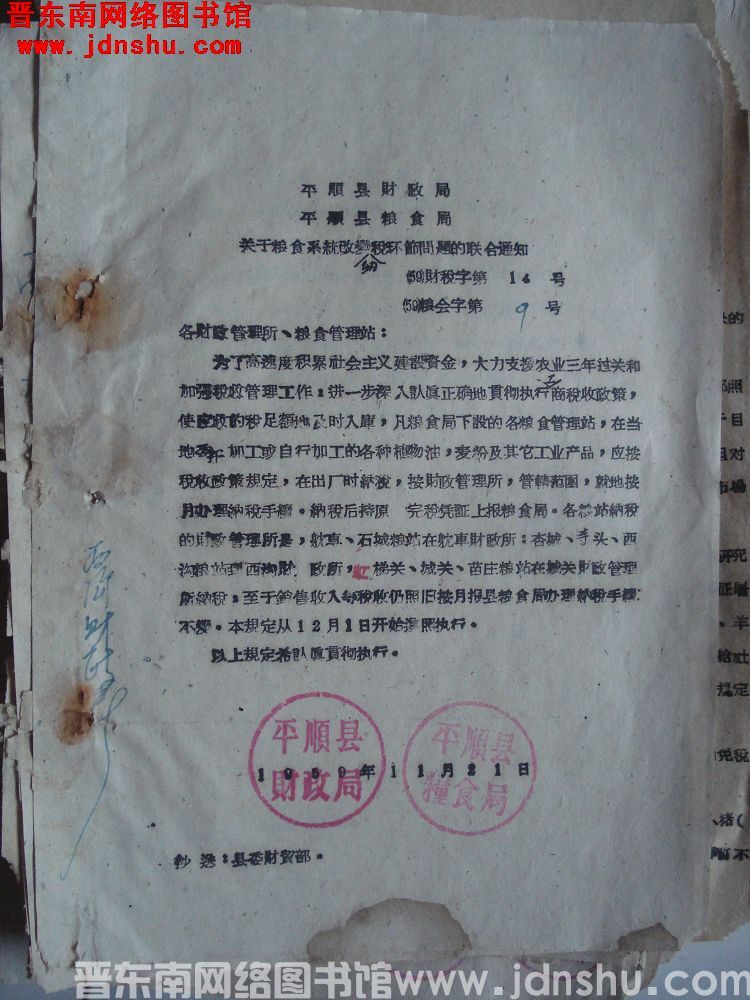 晋东南网络图书馆
www.jdnshu.com
平順县財政局
平順县粮食局
关于粮食系統改變納税环節問題的联合通知
(59)財税字第 14 号
(59)粮会字第 9 号
各財政管理所、粮食管理站：
为了高速度积累社会主义建設資金，大力支援农业三年过关和
加强税政管理工作：进一步深入認眞正确地貫彻执行工商税收政策，
使应政的税足額地及时入庫，凡粮食局下設的各粮食管理站，在当
地 加工或自行加工的各种植物油，麦粉及其它工业产品，应按
税收政策規定，在出厂时納税，按財政管理所，管轄范圍，就地按
月办理納税手續。納税后持原 完税凭証上报粮食局。各粮站納税
的財政管理所是，躭車、石城粮站在躭車財政所：杏城、寺头、西
沟粮站到西沟財 政所，虹梯关、城关、苗庄粮站在城关財政管理
所納税：至于銷售收入 税收仍照旧按月报县粮食局办理納税手續
不變。本規定从12月1日开始遵照执行。
以上規定希認眞貫彻执行。
平順县
財政局
平順县
糧食局
1959年11月21日
抄送：县委財貿部。
晋东南网络图书馆 www.jdnshu.com